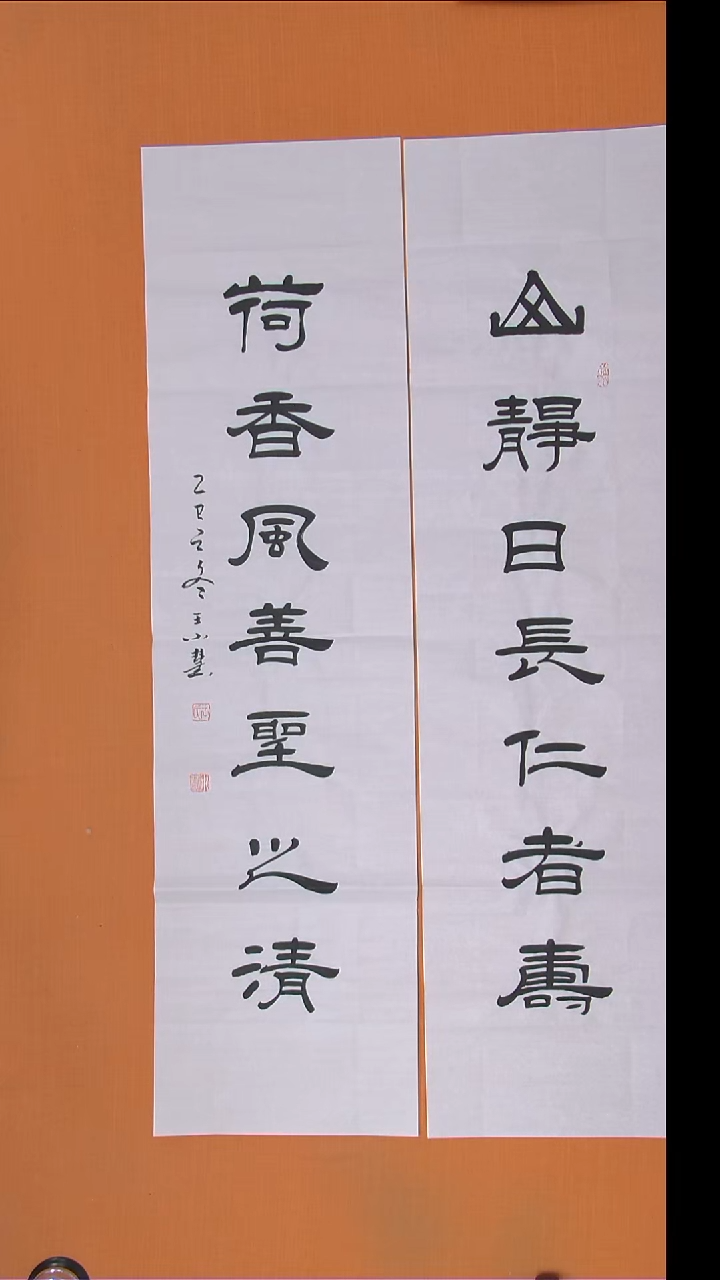 山靜日長仁者壽
荷香風善聖之清
乙巳之冬王小慧